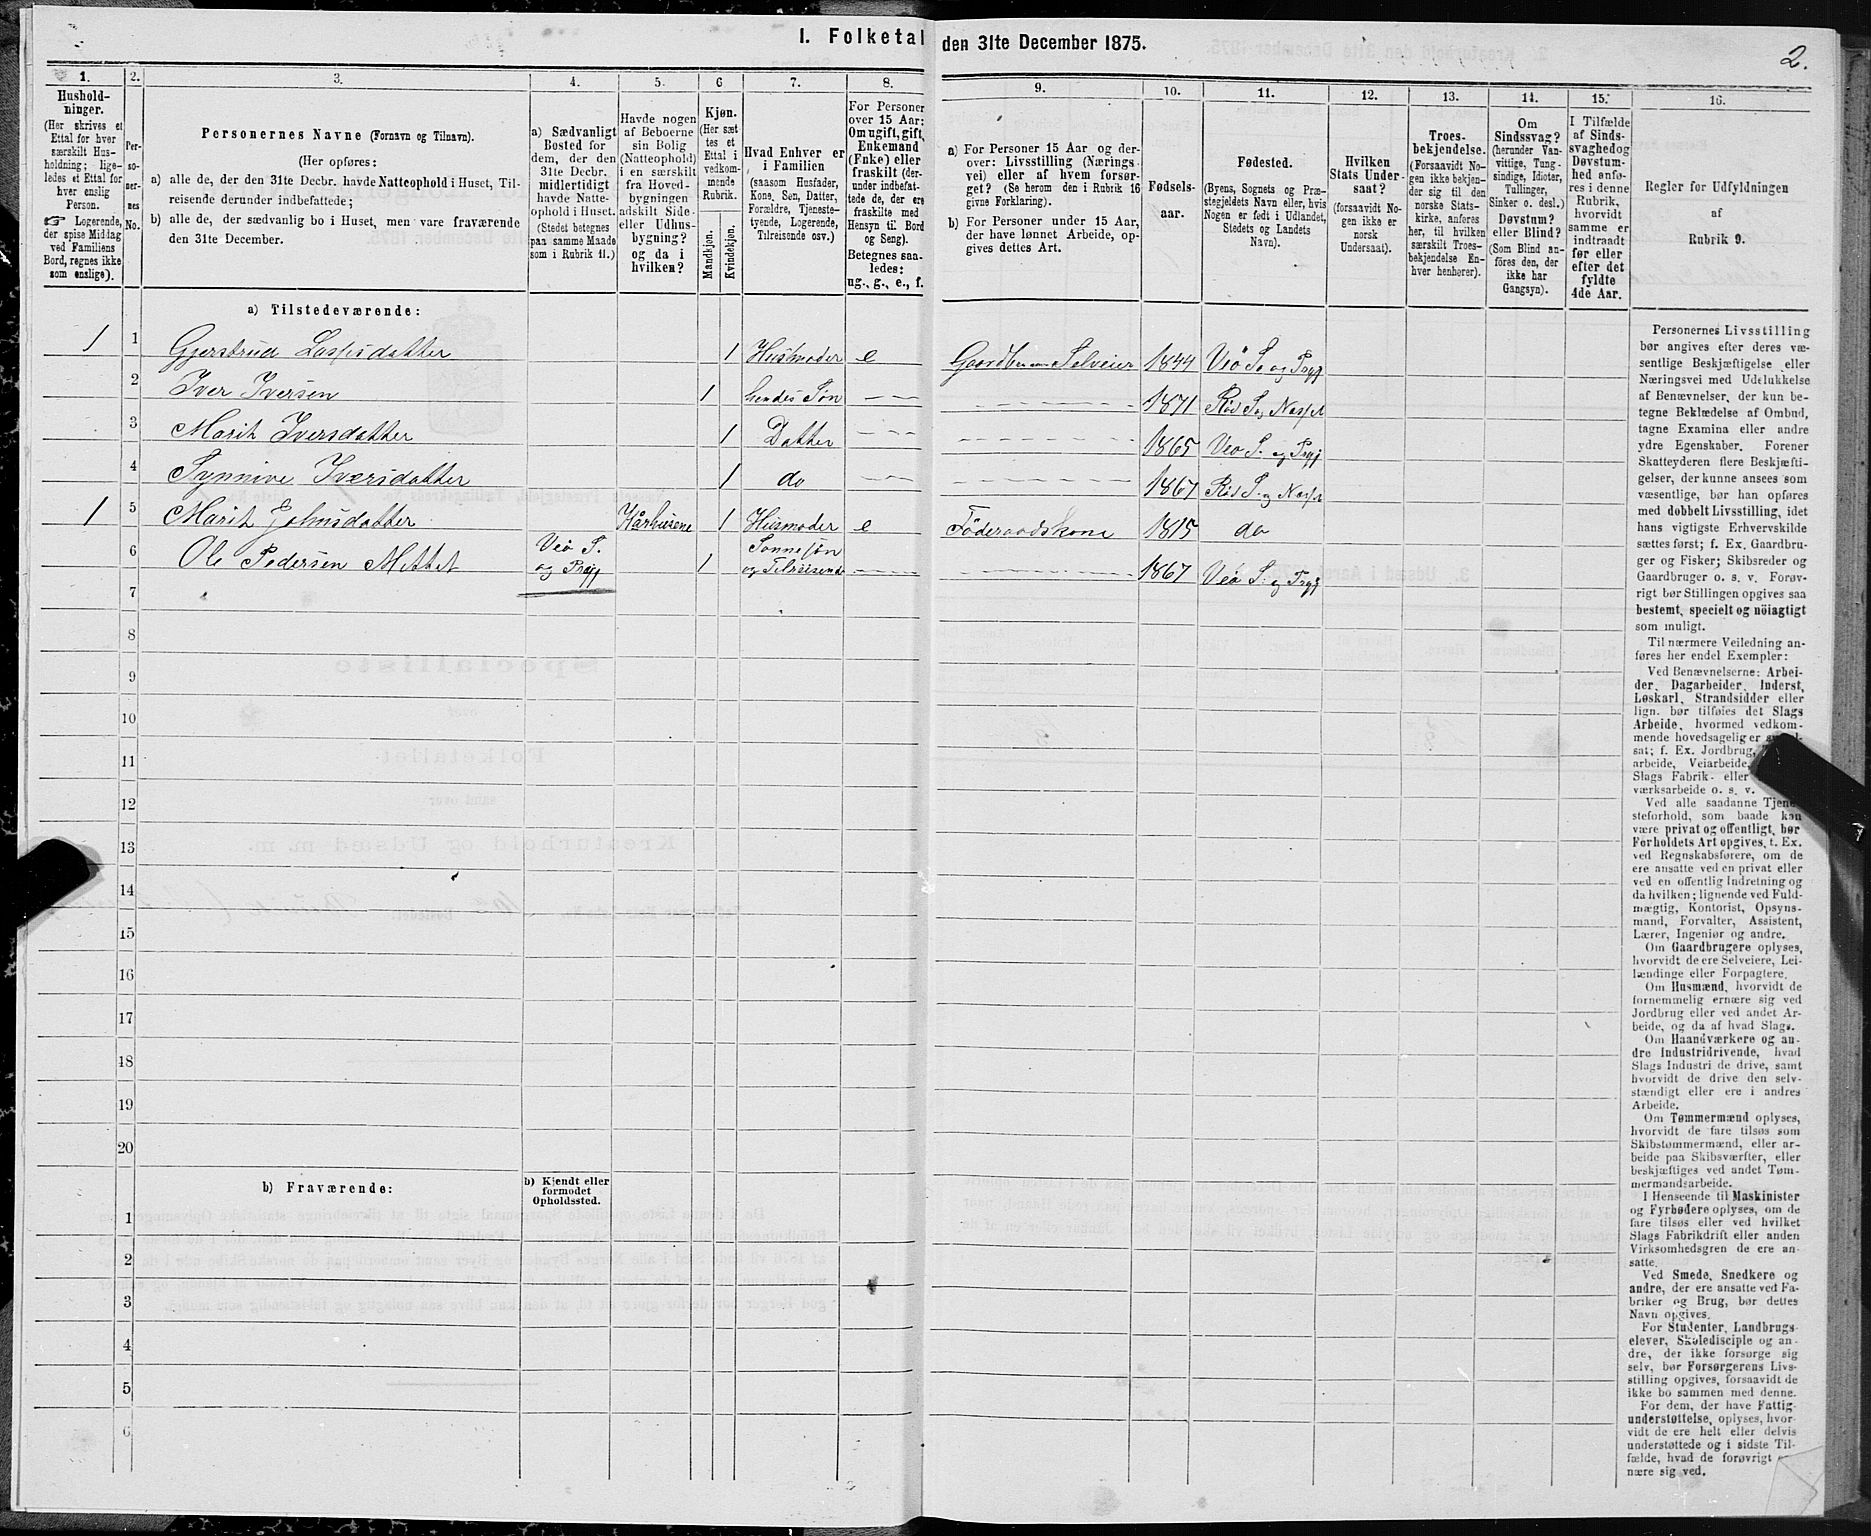 I. Folketal den 31te December 1875.
2.
1.
2.
3.
4.
5.
6
7.
8.
9.
10.
11.
12.
13.
14.
15.
16.
Hushold-
ninger.
(Her skrives et
Ettal for hver
særskilt Hus-
holdning; lige-
ledes et Ettal for
hver enslig
Person.
☞ Logerende,
der spise Middag
ved Familiens
Bord, regnes ikke
som enslige).
Per-
so-
ner-
nes
No.
Personernes Navne (Fornavn og Tilnavn).
(Her opføres:
a) alle de, der den 31te Decbr. havde Natteophold i Huset, Til-
reisende derunder indbefattede;
b) alle de, der sædvanlig bo i Huset, men vare fraværende
den 31te December.
a) Sædvanligt
Bosted for
dem, der den
31te Decbr.
midlertidigt
havde Natte-
ophold i Huset.
(Stedet betegnes
paa samme Maade
som i Rubrik 11.)
Havde nogen
af Beboerne
sin Bolig
(Natteophold)
i en særskilt
fra Hoved-
bygningen
adskilt Side-
eller Udhus-
bygning?
og da i
hvilken?
Kjøn.
(Her sæt-
tes et
Ettal i
vedkom-
mende
Rubrik.
Mandkjøn.
Kvindekjøn.
Hvad Enhver er
i Familien
(saasom Husfader,
Kone, Søn, Datter,
Forældre, Tjeneste-
tyende, Logerende,
Tilreisende osv.)
For Personer
over 15 Aar:
Om ugift, gift,
Enkemand
(Enke) eller
fraskilt (der-
under indbefat-
tede de, der ere
fraskilte med
Hensyn til Bord
og Seng).
Betegnes saa-
ledes:
ug., g., e., f.
a) For Personer 15 Aar og der-
over: Livsstilling (Nærings-
vei) eller af hvem forsør-
get? (Se herom den i Rubrik 16
givne Forklaring).
b) For Personer under 15 Aar,
der have lønnet Arbeide, op-
gives dettes Art.
Fødsels-
aar.
Fødested.
(Byens, Sognets og Præ-
stegjeldets Navn eller, hvis
Nogen er født i Udlandet,
Stedets og Landets
Navn).
Hvilken
Stats Under-
saat?
(forsaavidt No-
gen ikke er
norsk
Undersaat).
Troes-
bekjendelse.
(Forsaavidt No-
gen ikke bekjen-
der sig til den
norske Stats-
kirke, anføres
her, til hvilken
særskilt Troes-
bekjendelse En-
hver henhører).
Om
Sindssvag?
(herunder Van-
vittige, Tung-
sindige, Idioter,
Tullinger,
Sinker o. desl.)
Døvstum?
eller Blind?
(Som Blind an-
føres den, der
ikke har
Gangsyn).
I Tilfælde
af Sinds-
svaghed og
Døvstum-
hed anfø-
res i denne
Rubrik,
hvorvidt
samme er
indtraadt
før eller
efter det
fyldte
4de Aar.
Regler for Udfyldningen
af
Rubrik 9.
a) Tilstedeværende:
1 1 Gjerstrud Lassesdatter 1 Husmoder e Gaardbr Selveier 1844 Veö S. og Prgj
2 Iver Iversen 1 hendes Søn 1871 Röd S. og Nasset
3 Marit Iversdatter 1 Datter 1865 Veö S. og Prgj
4 Synnive Iversdatter 1 do 1867 Röd S. og Nasset
1 5 Marit Johnsdatter Kårhusene 1 Husmoder e Föderaadskone 1815 do
6 Ole Pedersen Mettet Veö S. og Prgj 1 Sönnesön og Tilreisende 1867 Veö S. og Prgj
7
8
9
10
11
12
13
14
15
16
17
18
19
20
b) Fraværende:
b) Kjendt eller
formodet
Opholdssted.
1
2
3
4
5
6
Personernes Livsstilling
bør angives efter deres væ-
sentlige Beskjæftigelse eller
Næringsvei med Udelukkelse
af Benævnelser, der kun be-
tegne Beklædelse af Ombud,
tagne Examina eller andre
ydre Egenskaber. Forener
Skatteyderen flere Beskjæfti-
gelser, der kunne ansees som
væsentlige, bør han opføres
med dobbelt Livsstilling, idet
hans vigtigste Erhvervskilde
sættes først; f. Ex. Gaardbru-
ger og Fisker; Skibsreder og
Gaardbruger o. s. v. Forøv-
rigt bør Stillingen opgives saa
bestemt, specielt og nöiagtigt
som muligt.
Til nærmere Veiledning an-
føres her endel Exempler:
Ved Benævnelserne: Arbei-
der, Dagarbeider, Inderst,
Løskarl, Strandsidder eller
lign. bør tilføies det Slags
Arbeide, hvormed vedkom-
mende hovedsagelig er
sat; f. Ex. Jordbrug,
arbeide, Veiarbeide,
Slags Fabrik- eller
værksarbeide o. s. v.
Ved alle saadanne Tjene-
steforhold, som baade kan
være privat og offentligt, bør
Forholdets Art opgives, f. Ex.
ved Regnskabsførere, om de
ere ansatte ved en privat eller
ved en offentlig Indretning og
da hvilken; lignende ved Fuld-
mægtig, Kontorist, Opsyns-
mand, Forvalter, Assistent,
Lærer, Ingeniør og andre.
Om Gaardbrugere oplyses,
hvorvidt de ere Selveiere, Lei-
lændinge eller Forpagtere.
Om Husmænd, hvorvidt de
fornemmelig ernære sig ved
Jordbrug eller ved andet Ar-
beide, og da af hvad Slags.
Om Haandværkere og an-
dre Industridrivende, hvad
Slags Industri de drive, samt
hvorvidt de drive den selv-
stændigt eller ere i andres
Arbeide.
Om Tømmermænd oplyses,
hvorvidt de fare tilsøs som
Skibstømmermænd, eller ar-
beide paa Skibsværfter, eller
beskjæftiges ved andet Tøm-
mermandsarbeide.
I Henseende til Maskinister
og Fyrbødere oplyses, om de
fare tilsøs eller ved hvilket
Slags Fabrikdrift eller anden
Virksomhedsgren de ere an-
satte.
Ved Smede, Snedkere og
andre, der ere ansatte ved Fa-
briker og Brug, bør dettes
Navn opgives.
For Studenter, Landbrugs-
elever, Skoledisciple og an-
dre, der ikke forsørge sig
selv, bør Forsørgerens Livs-
stilling opgives, forsaavidt de
ikke bo sammen med denne.
For dem, der have Fattig-
understøttelse, oplyses, hvor-
vidt de ere helt eller delvis
understøttede og i sidste Til-
fælde, hvad de forøvrigt
nære sig ved.